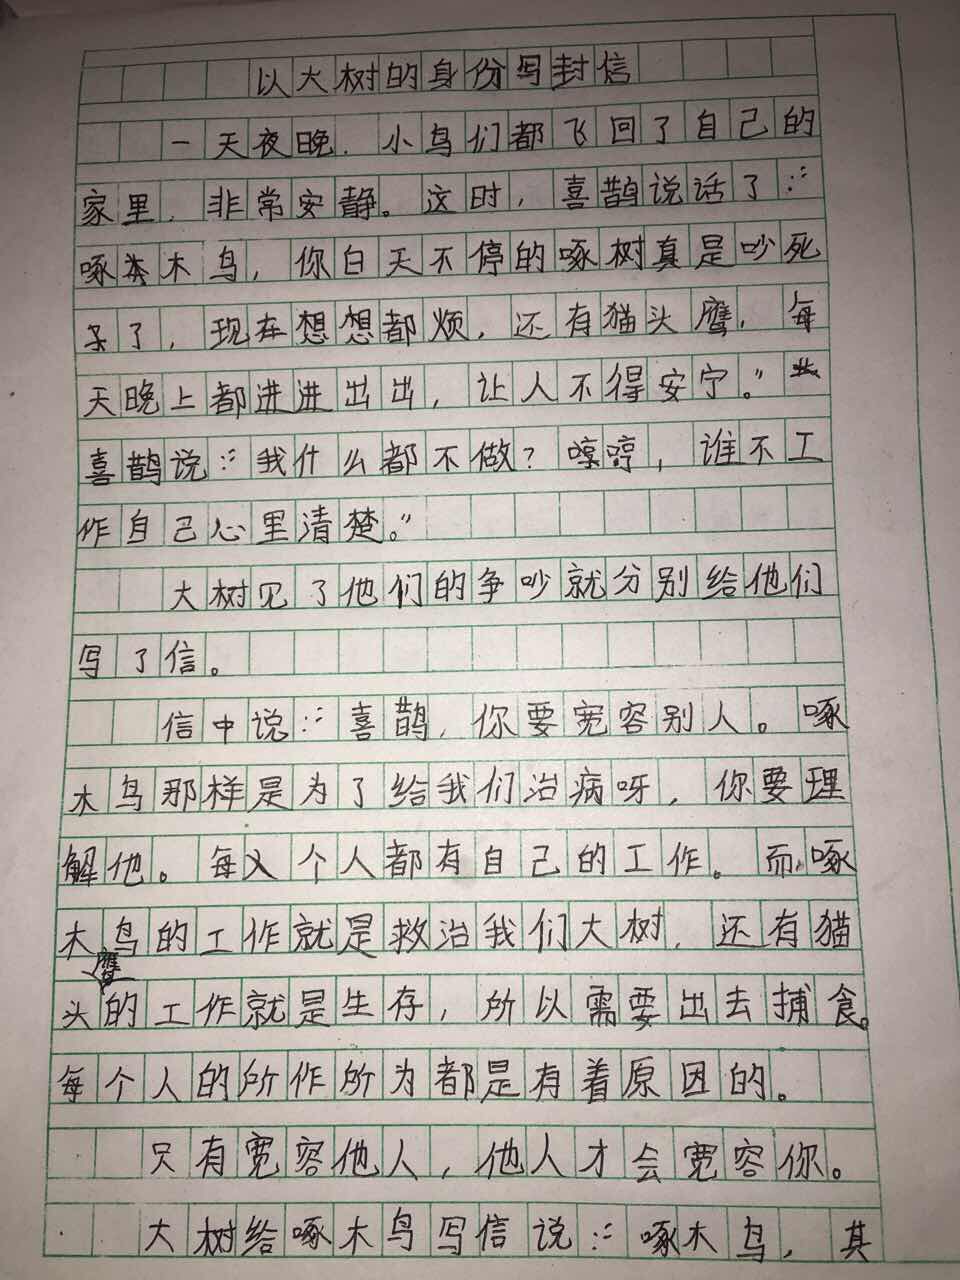 以大树的身份写封信
一天夜晚，小鸟们都飞回了自己的
家里，非常安静。这时，喜鹊说话了：“
啄木鸟，你白天不停的啄树真是吵死
了，现在想想都烦，还有猫头鹰，每
天晚上都进进出出，让人不得安宁。”
喜鹊说：“我什么都不做？哼哼，谁不工
作自己心里清楚。”
大树见了他们的争吵就分别给他们
写了信。
信中说：“喜鹊，你要宽容别人。啄
木鸟那样是为了给我们治病呀，你要理
解他。每个人都有自己的工作。而啄
木鸟的工作就是救治我们大树，还有猫
头鹰的工作就是生存，所以需要出去捕食。
每个人的所作所为都是有着原因的。
只有宽容他人，他人才会宽容你。
大树给啄木鸟写信说：“啄木鸟，其